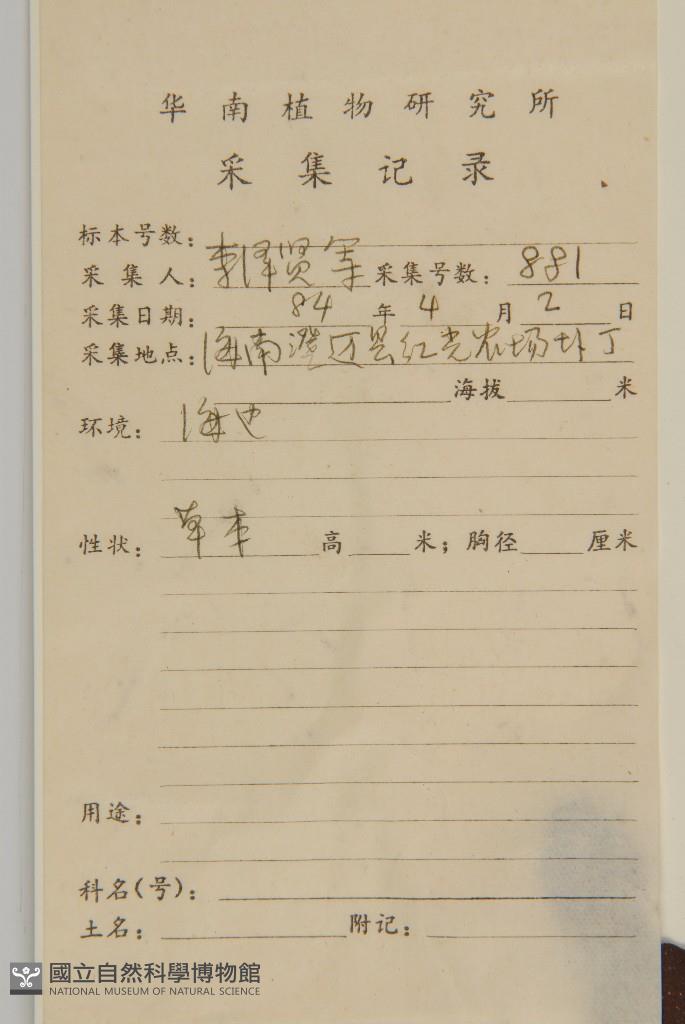 华南植物研究所
采集记录
标本号数：
采集人：李泽贤等 采集号数：881
采集日期：84年4月2日
采集地点：海南澄迈县红光农场
海拔 米
环境：海边
性状：草本 高 米；胸径 厘米
用途：
科名(号)：
土名： 附记：
國立自然科學博物館
NATIONAL MUSEUM OF NATURAL SCIENCE